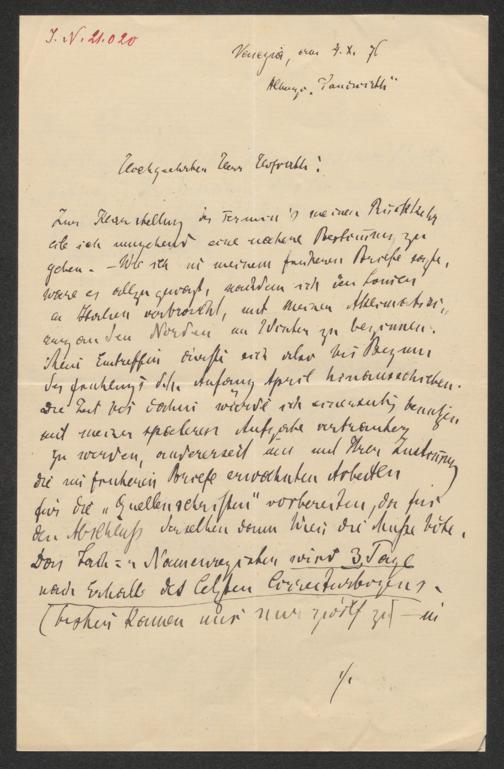 J. N. 21.020
Venezia, am 7. X. 76
Albergo "Sandwirth"
Hochgeehrter Herr Hofrath!
Zur Klarstellung des Termin's meiner Rückkehr
eile ich umgehend eine nähere Bestimmung zu
geben. – Wie ich in meinem früheren Briefe sagte,
wäre es allzu gewagt, nachdem ich den Sommer
in Italien verbracht, mit meiner Akklimatisi-
rung an den Norden im Winter zu beginnen.
Mein Eintreffen dürfte sich also bis Beginn
des Frühlings d. h. Anfang April hinausschieben.
Die Zeit bis dahin würde ich einerseits benutzen
mit meiner späteren Aufgabe vertrauter
zu werden, andererseits um mit Ihrer Zustimmung
die im früheren Briefe erwähnten Arbeiten
für die "Quellenschriften" vorbereiten, da für
den Abschluss derselben dann Wien die Muße böte.
Das Sach- u. Namenregister wird 3 Tage
nach Erhalt des letzten Correcturbogens –
(bisher kamen mir nur zwölf zu) – in
./.